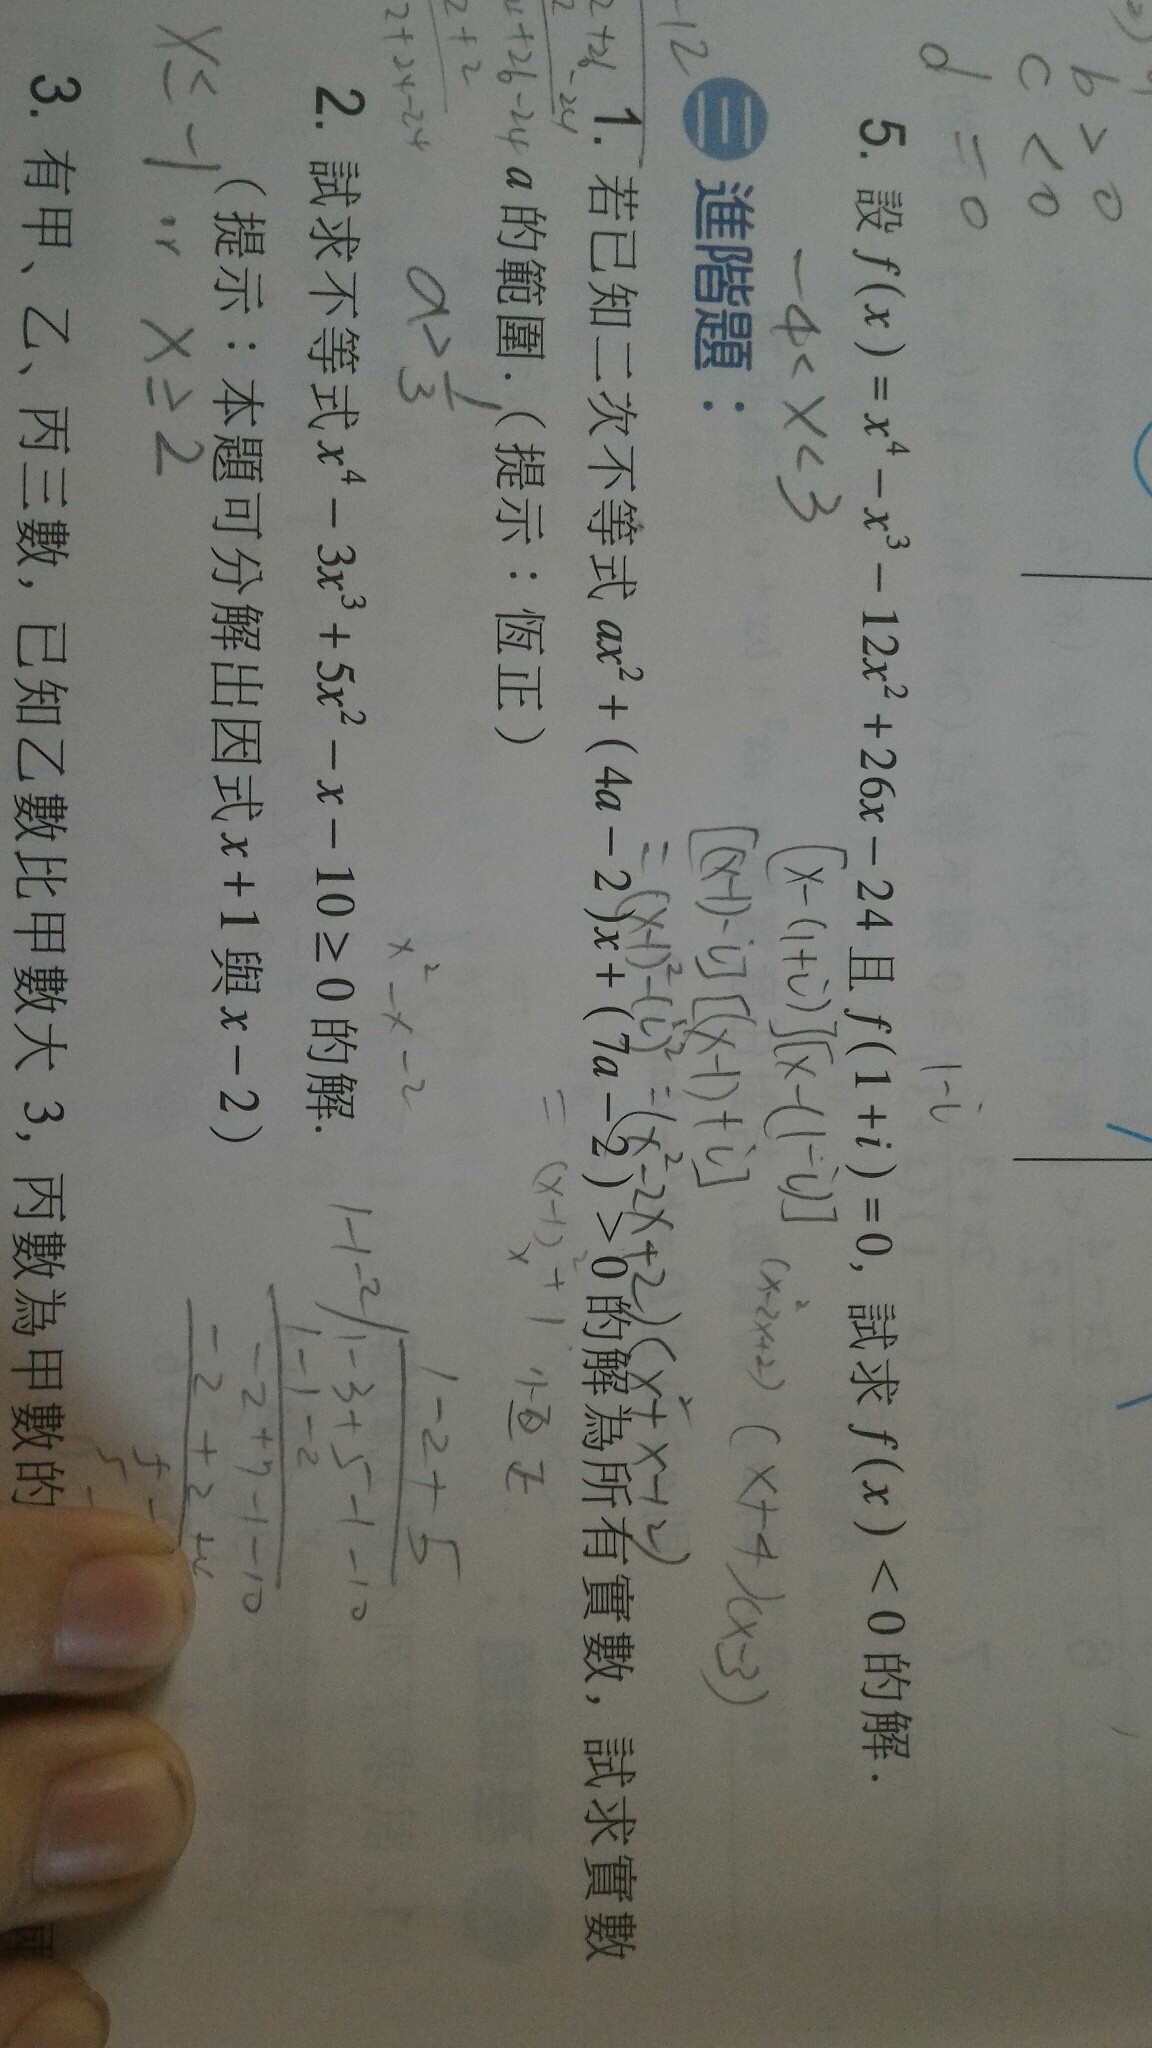 b > 0
c < 0
d = 0
5. 設 f(x) = x⁴ − x³ − 12x² + 26x − 24 且 f(1 + i) = 0, 試求 f(x) < 0 的解.
1-i
-4 < x < 3
[x-(1+i)][x-(1-i)]
(x²-2x+2) (x+4)(x-3)
[(x-1)-i][(x-1)+i]
= (x-1)²-(i)² = (x²-2x+2)(x²+x-12)
= (x-1)²+1
-12
三 進階題：
1. 若已知二次不等式 ax² + (4a − 2)x + (7a − 2) > 0 的解為所有實數, 試求實數
a 的範圍. (提示：恆正)
a > 1/3
2. 試求不等式 x⁴ − 3x³ + 5x² − x − 10 ≥ 0 的解.
(提示：本題可分解出因式 x + 1 與 x − 2)
x²-x-2
1-2+5
1-1-2 / 1-3+5-1-10
1-1-2
-2+7-1-10
x ≤ -1 or x ≥ 2
3. 有甲、乙、丙三數, 已知乙數比甲數大 3, 丙數為甲數的